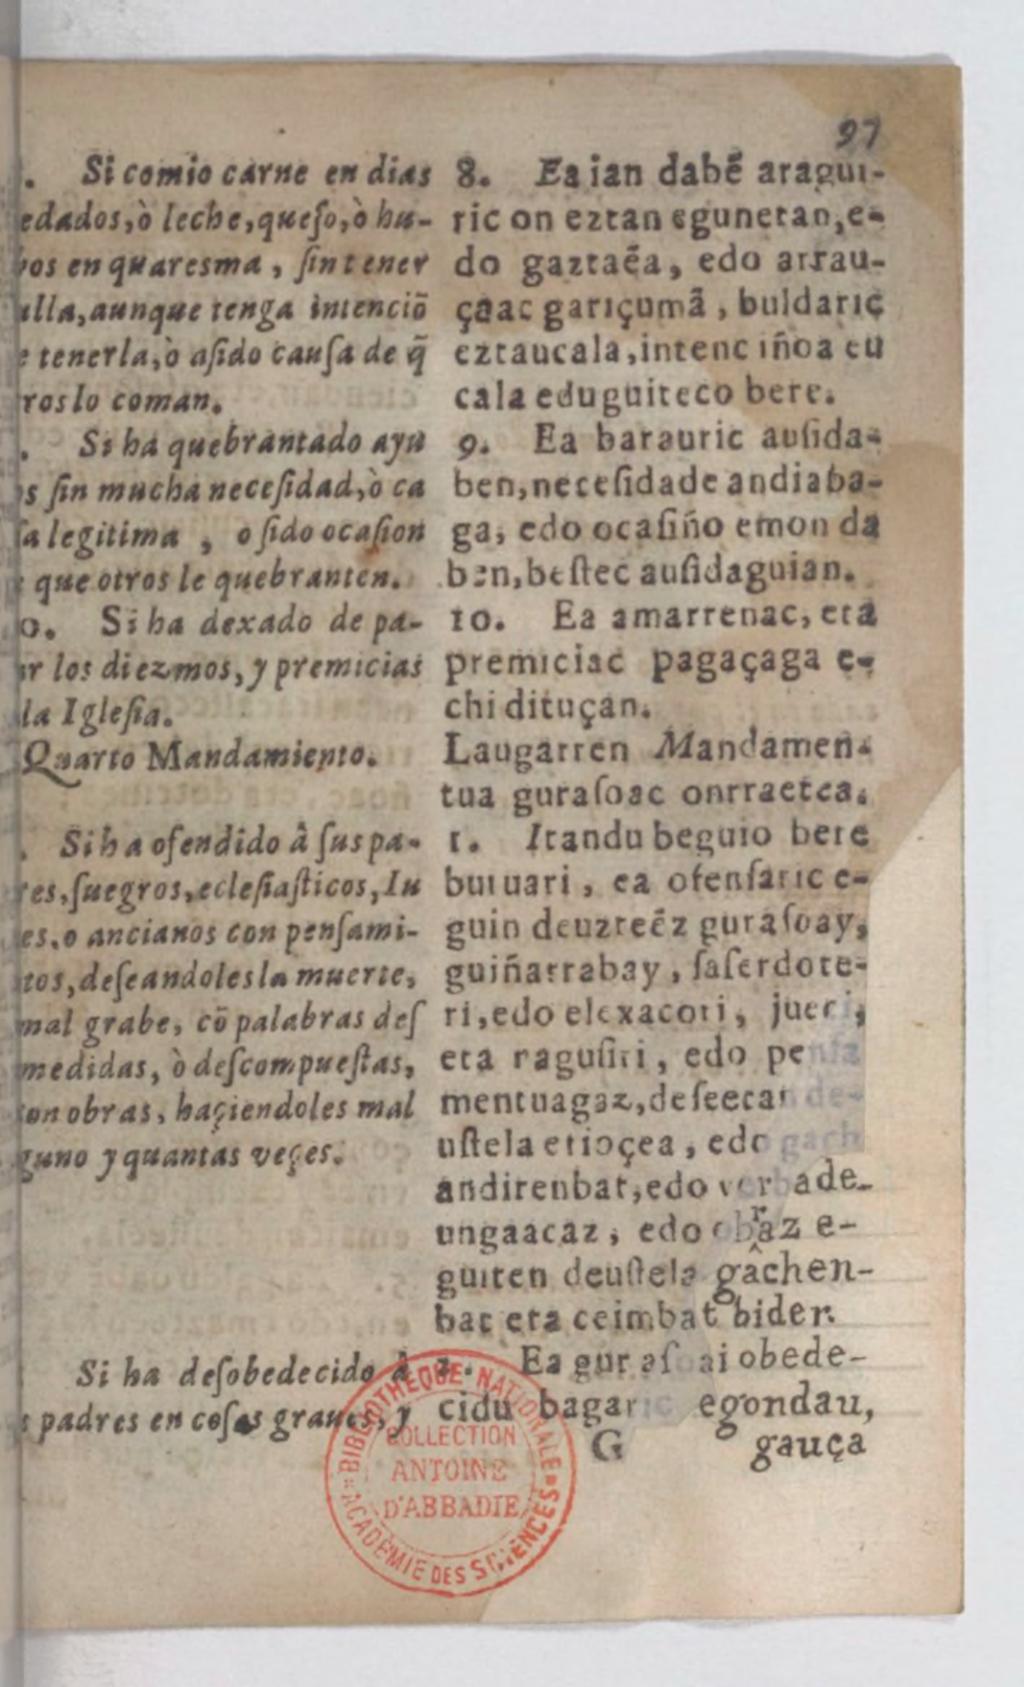 97
. Si comio carne en dias
edados, ò leche, queſo, ò hu-
vos en quaresma, ſin tener
ulla, aunque tenga intenciõ
e tenerla, ò aſido cauſa de q̃
ros lo coman.
. Si ha quebrantado ayu
os ſin mucha neceſidad, ò ca
ſa legitima, o ſido ocaſion
e que otros le quebranten.
o. Si ha dexado de pa-
ar los diezmos, y premicias
la Igleſia.
Quarto Mandamiento.
. Si ha ofendido â ſus pa-
res, ſuegros, ecleſiaſticos, Iu
es, o ancianos con penſami-
tos, deſeandoles la muerte,
mal grabe, cõ palabras deſ
medidas, ò deſcompueſtas,
con obras, haçiendoles mal
guno y quantas veçes.
Si ha deſobedecido à
s padres en coſas graues, y
8. Ea ian dabẽ aragui-
ric on eztan egunetan, e-
do gaztaẽa, edo arrau-
çaac gariçumã, buldaric
eztaucala, intenciñoa eu
cala eduguiteco bere.
9. Ea barauric auſida-
ben, neceſidade andiaba-
ga, edo ocaſiño emon da
ben, beſtec auſidaguian.
10. Ea amarrenac, eta
premiciac pagaçaga e-
chi dituçan.
Laugarren Mandamen-
tua guraſoac onrraetea.
1. Itandu beguio bere
buruari, ea ofenſaric e-
guin deuzteẽz guraſoay,
guiñarrabay, ſaſerdote-
ri, edo elexacori, jueci,
eta raguſiri, edo penſa
mentuagaz, deſeetan de-
uſtela erioçea, edo gach
andirenbat, edo verbade-
ungaacaz, edo obraz e-
guiten deuſtela gâchen-
bat eta ceimbat bider.
2. Ea guraſoai obede-
cidu bagaric egondau,
G gauça
BIBLIOTHÈQUE NATIONALE
COLLECTION
ANTOINE
D'ABBADIE
ACADÉMIE DES SCIENCES